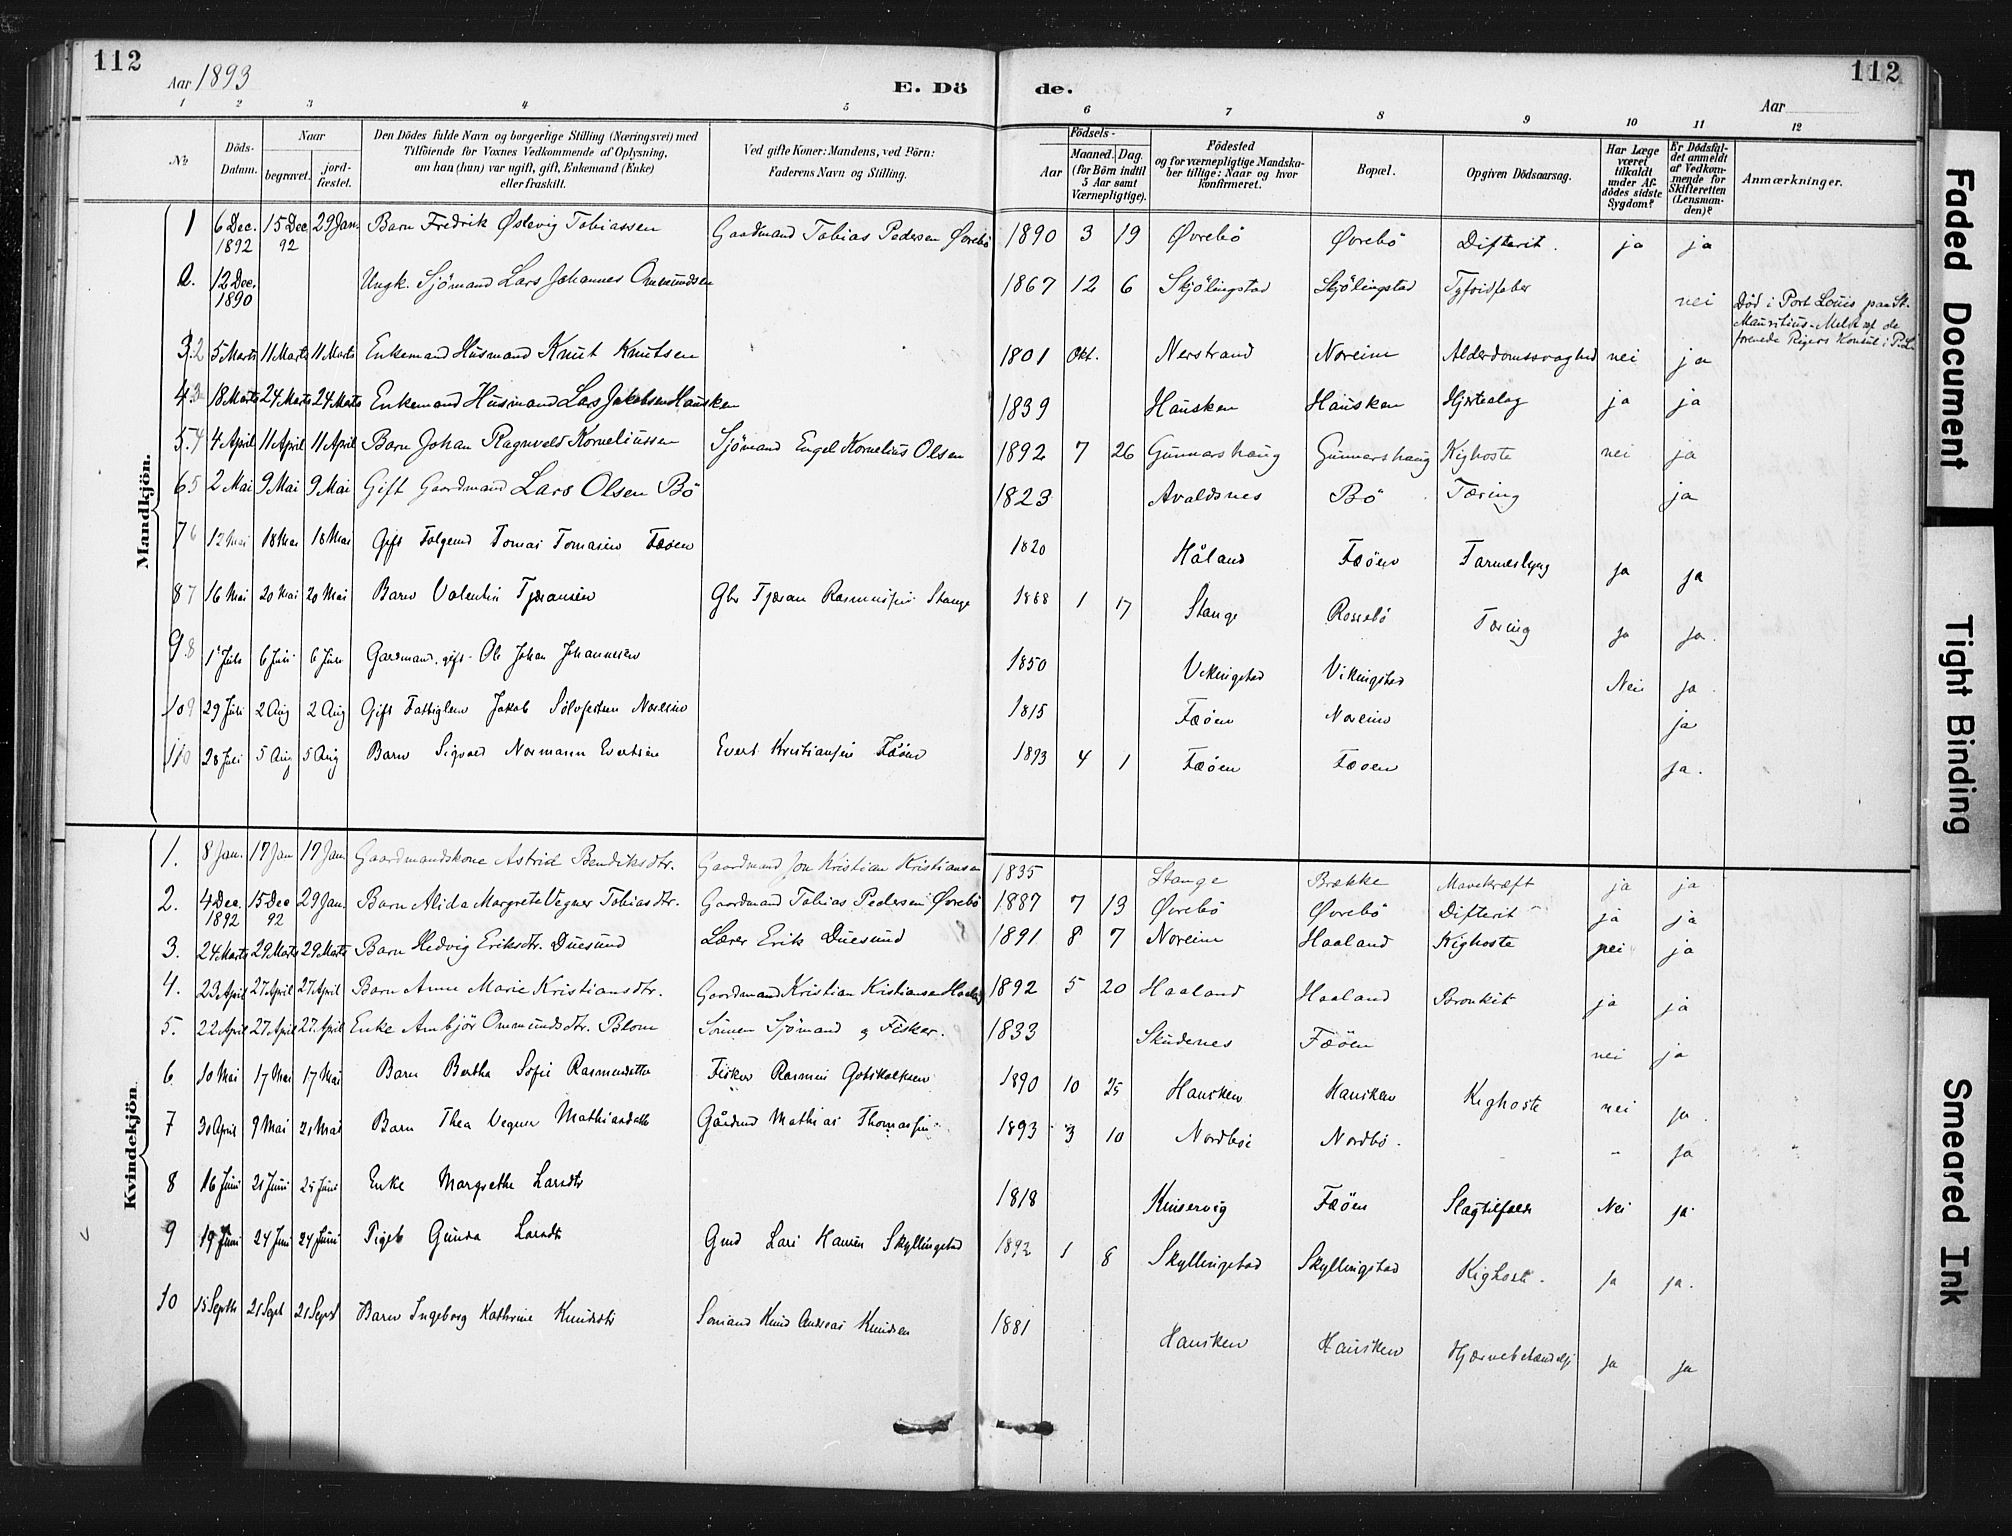 112
Aar 1893
E. Dö
de.
Aar
112
1 2 3 4 5 6 7 8 9 10 11 12
No
Döds-
Datum.
Naar
begravet.
jord-
fæstet.
Den Dödes fulde Navn og borgerlige Stilling (Næringsvei) med
Tilföiende for Voxnes Vedkommende af Oplysning,
om han (hun) var ugift, gift, Enkemand (Enke)
eller fraskilt.
Ved gifte Koner: Mandens, ved Börn:
Faderens Navn og Stilling.
Födsels-
Aar
Maaned. Dag.
(for Börn indtil
5 Aar samt
Værnepligtige).
Födested
og for værnepligtige Mandska-
ber tillige: Naar og hvor
konfirmeret.
Bopæl.
Opgiven Dödsaarsag.
Har Læge
været
tilkaldt
under Af-
dödes sidste
Sygdom?
Er Dödsfal-
det anmeldt
af Vedkom-
mende for
Skifteretten
(Lensman-
den)?
Anmærkninger.
Mandkjön.
1 6 Dec. 1892 15 Dec 92 29 Jan. Barn Fredrik Østevig Tobiassen Gaardmand Tobias Pedersen Øvrebö 1890 3 19 Øvrebö Øvrebö Difterit. ja ja
2. 12 Dec. 1890 Ungk. Sjömand Lars Johannes Ommundsen 1867 12 6 Skjölingstad Skjölingstad Tyfoidfeber nei Död i Port Louis paa St.
Mauritius. Meldt af de
forenede Rigers Konsul i P.L.
3 2 5 Marts 11 Marts 11 Marts Enkemand Husmand Knut Knutsen 1801 Okt. Nerstrand Noreim Alderdomssvaghed nei ja
4 3 18 Marts 24 Marts 24 Marts Enkemand Husmand Lars Jakobsen Hausken 1839 Hausken Hausken Hjerteslag ja ja
5. 4 4 April 11 April 11 April Barn Johan Ragnvald Korneliussen Sjömand Engel Kornelius Olsen 1892 7 26 Gunnarshaug Gunnarshaug Kighoste nei ja
6 5 2 Mai 9 Mai 9 Mai Gift Gaardmand Lars Olsen Bö 1823 Avaldsnes Bö Tæring ja
7 6 12 Mai 18 Mai 18 Mai Gift Tomas Tomasen Fæoen 1820 Håland Fæöen ja ja
8 7 16 Mai 20 Mai 20 Mai Barn Valentin Tjæransen Gbr Tjæran Rasmussen Stange 1888 1 17 Stange Rossebö Tæring ja ja.
9 8 1 Juli 6 Juli 6 Juli Gardmand. gift. Ole Johan Johannesen 1850 Vikingstad Vikingstad Nei ja.
10 9 29 Juli 2 Aug 2 Aug Gift Fattiglem Jakob Sølvfestsen Noreim 1815 Fæöen Noreim ja
11 10 28 Juli 5 Aug 5 Aug Barn Sigvald Normann Evertsen Evert Kristiansen Fæöen 1893 4 1 Fæöen Fæoen ja.
Kvindekjön.
1. 8 Jan. 17 Jan 17 Jan. Gaardmandskone Astrid Bendiksdtr. Gaardmand Jon Kristian Kristiansen 1835 Stange Brække Mavekræft ja ja
2. 4 Dec. 1892 15 Dec 92 29 Jan. Barn Alida Margrete Vegner Tobiasdtr. Gaardmand Tobias Pedersen Øvrebö 1887 7 13 Øvrebö Øvrebö Difterit ja ja
3. 24 Marts 29 Marts 29 Marts Barn Hedvig Eriksdtr. Duesund Lærer Erik Duesund 1891 8 7 Noreim Haaland Kighoste nei ja
4. 23 April 27 April 27 April Barn Anne Marie Kristiansdtr. Gaardmand Kristian Kristiansen Haaland 1892 5 20 Haaland Haaland Bronkit ja ja
5. 22 April 27 April 27 April Enke Anbjör Ommundsdtr. Blom Sönnen Sjömand og Fisker. 1833 Skudenes Fæöen nei ja
6 10 Mai 17 Mai 17 Mai Barn Bertha Sofie Rasmusdatter Fisker Rasmus Gotskalksen 1890 10 25 Hausken Hausken Kighoste nei ja.
7 30 April 9 Mai 21 Mai Barn Thea Vegner Mathiasdatter Gårdmd Mathias Thomassen 1893 3 10 Nordböe Nordbö. " ja
8 16 Juni 21 Juni 25 Juni Enke Margrethe Larsdtr 1818 Kinservig Fæöen Slagtilfælde Nei ja
9 19 Juni 24 Juni 24 Juni Pigeb Gunda Larsdtr Gmd Lars Hansen Skyllingstad 1892 1 8 Skyllingstad Skyllingstad Kighoste. ja ja.
10 15 Septb 21 Sept 21 Sept Barn Ingeborg Kathrine Knudsdtr Sömand Knud Andreas Knudsen 1881 Hausken Hausken ja ja
Faded Document
Tight Binding
Smeared Ink